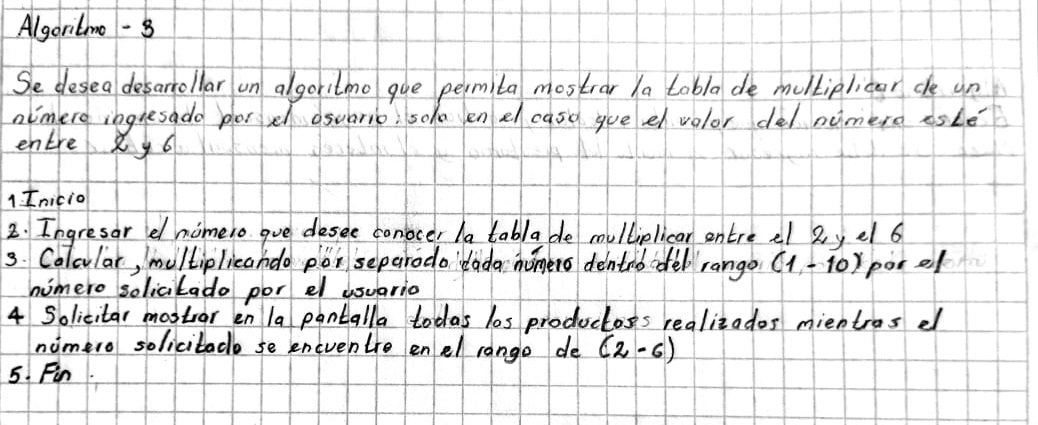 Algoritmo - 3
Se desea desarrollar un algoritmo que permita mostrar la tabla de multiplicar de un
número ingresado por el usuario: solo en el caso que el valor del número esté
entre 2 y 6
1 Inicio
2. Ingresar el número que desee conocer la tabla de multiplicar entre el 2 y el 6
3. Calcular, multiplicando por separado cada número dentro del rango (1 - 10) por el
número solicitado por el usuario
4 Solicitar mostrar en la pantalla todas los productos realizados mientras el
número solicitado se encuentre en el rango de (2 - 6)
5. Fin.